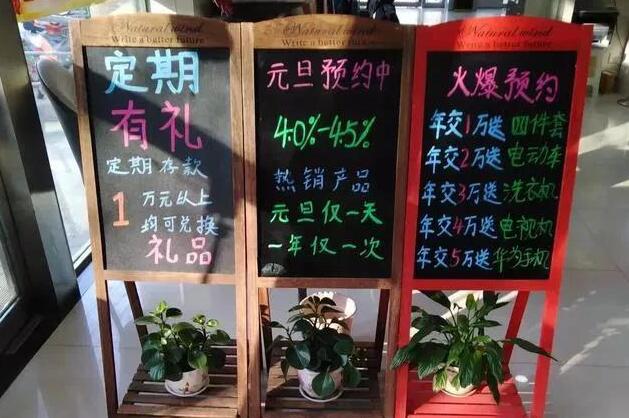 Natural wind
Write a batter future
定期
有礼
定期存款
1 万元以上
均可兑换
礼品
Natural wind
Write a batter future
元旦预约中
4.0%-4.5%
热销产品
元旦仅一天
一年仅一次
Natural wind
Write a batter future
火爆预约
年交1万送四件套
年交2万送电动车
年交3万送洗衣机
年交4万送电视机
年交5万送华为手机